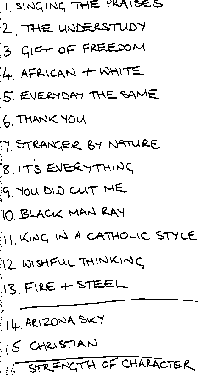 1. SINGING THE PRAISES
2. THE UNDERSTUDY
3 GIFT OF FREEDOM
4. AFRICAN + WHITE
5. EVERYDAY THE SAME
6. THANK YOU
7. STRANGER BY NATURE
8. IT'S EVERYTHING
9. YOU DID CUT ME
10. BLACK MAN RAY
11. KING IN A CATHOLIC STYLE
12 WISHFUL THINKING
13. FIRE + STEEL
14. ARIZONA SKY
15 CHRISTIAN
16 STRENGTH OF CHARACTER